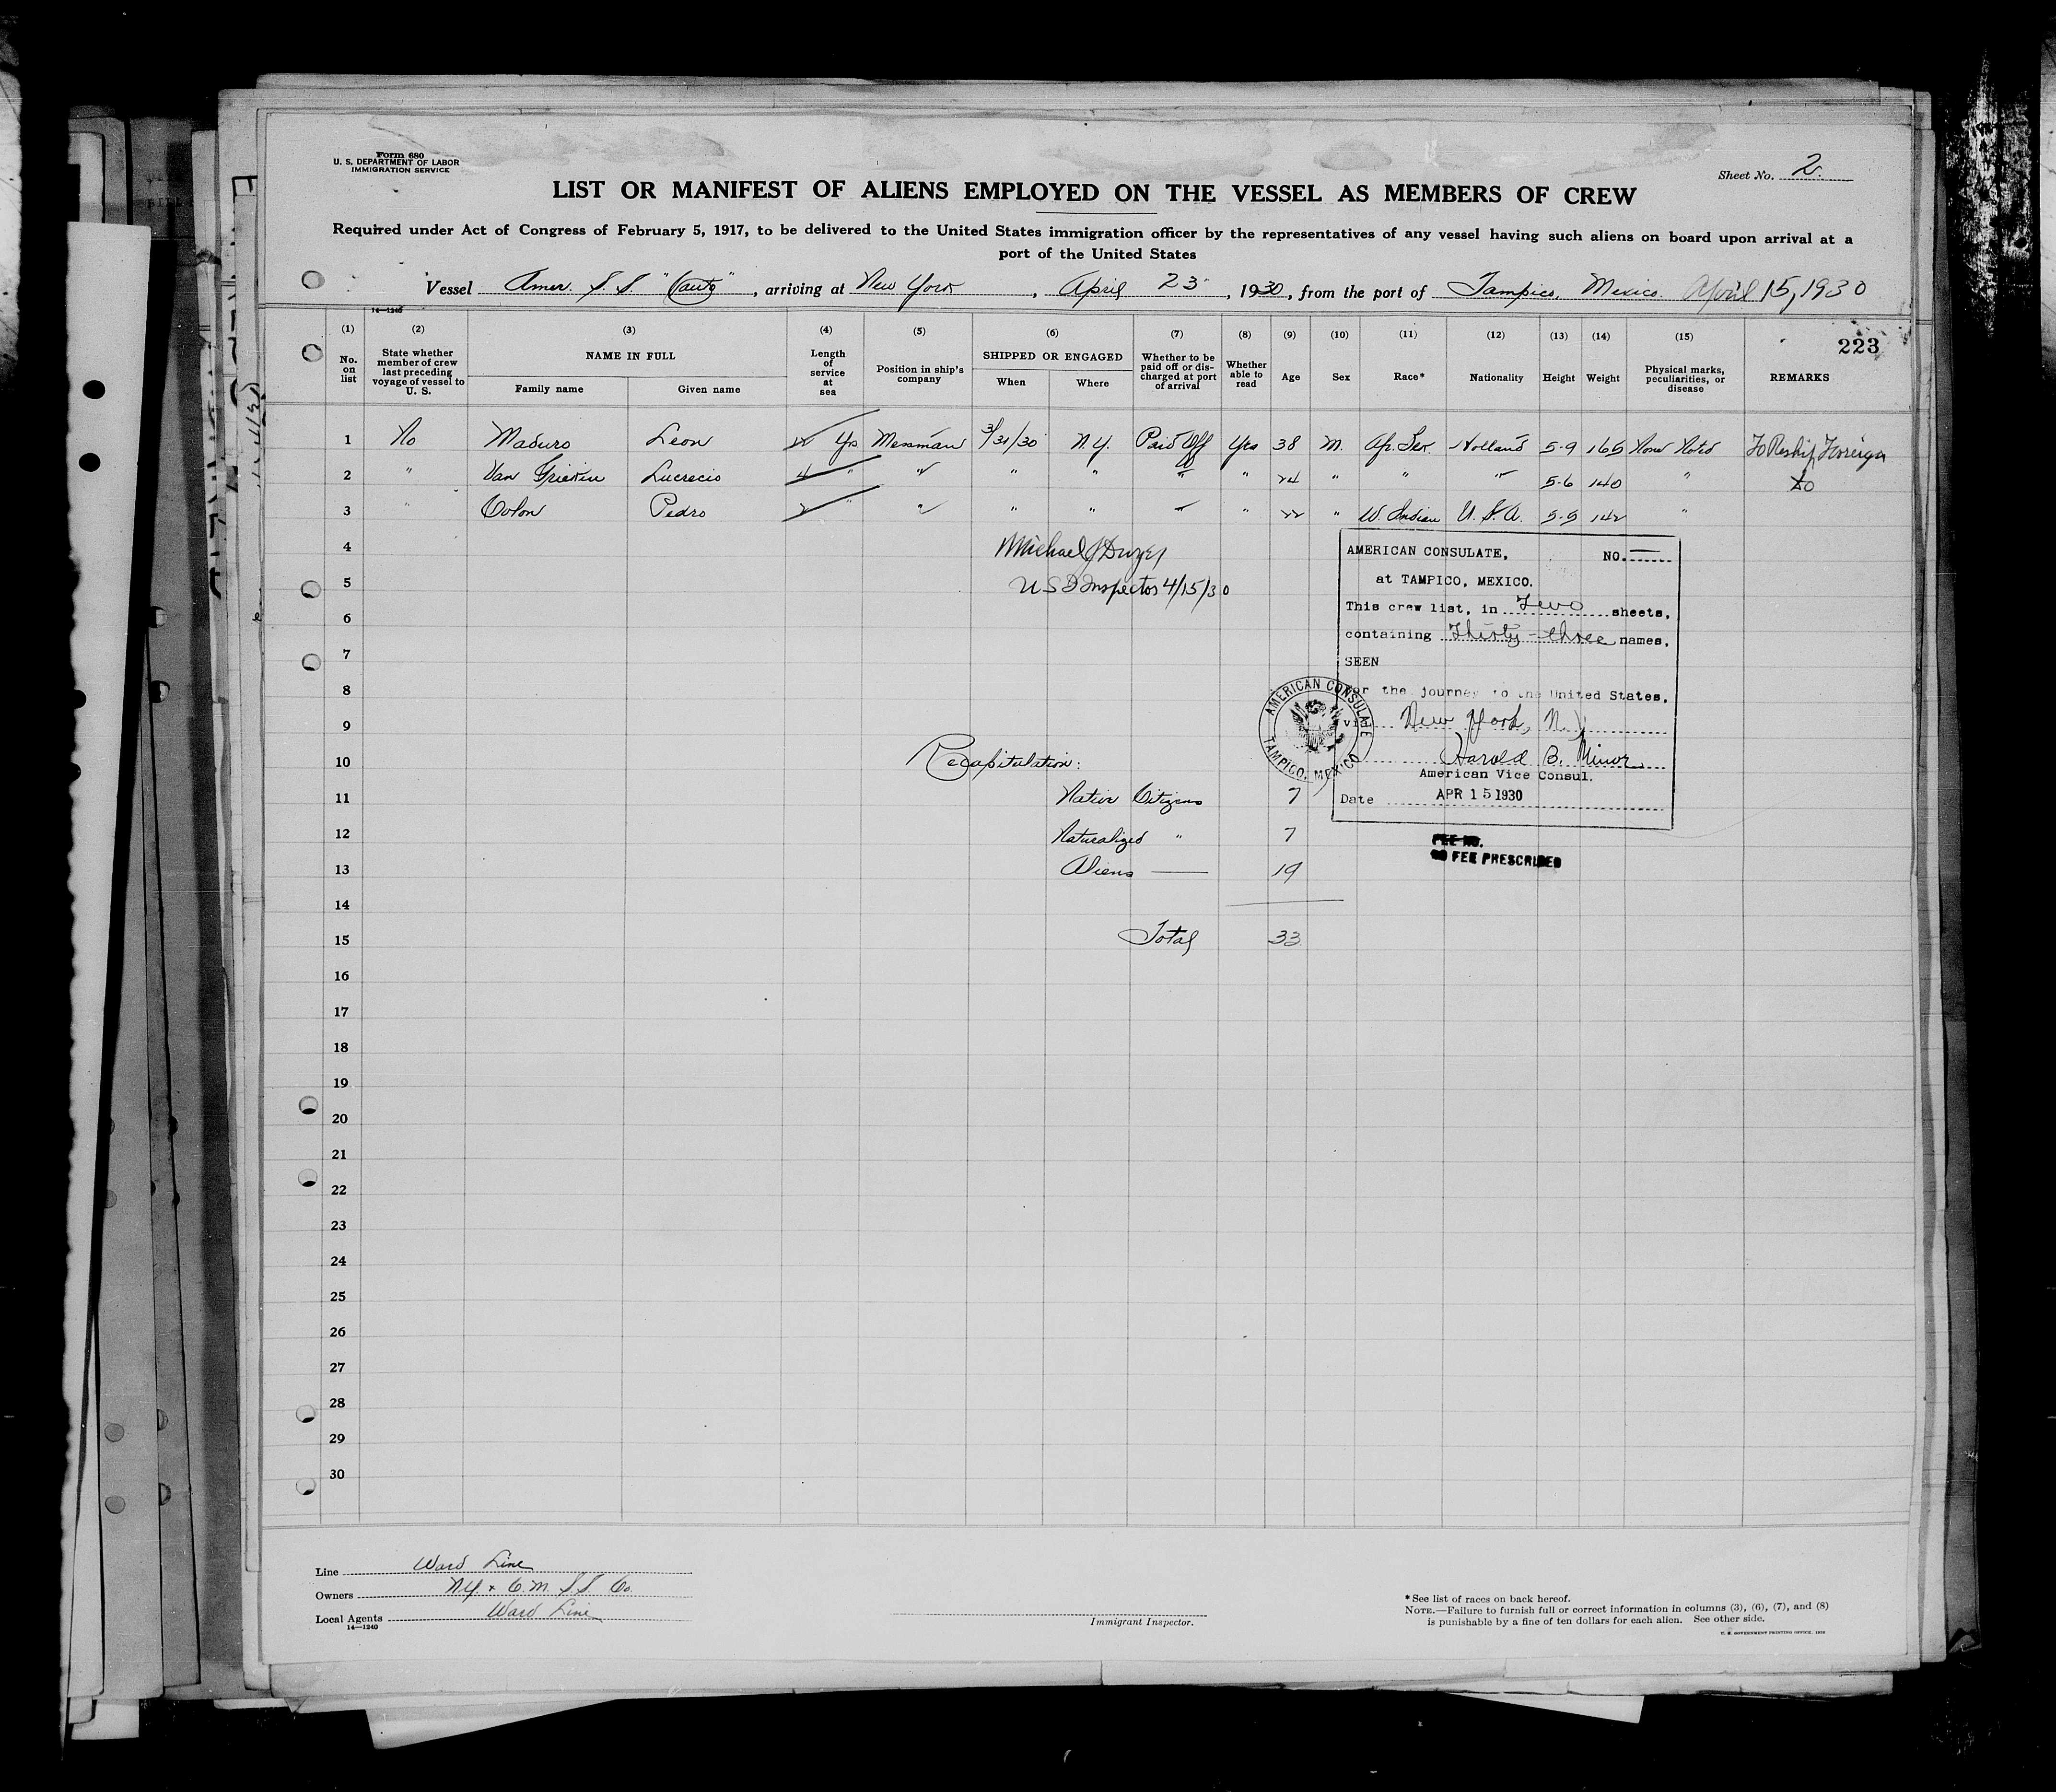 Form 680
U. S. DEPARTMENT OF LABOR
IMMIGRATION SERVICE
Sheet No. 2.
LIST OR MANIFEST OF ALIENS EMPLOYED ON THE VESSEL AS MEMBERS OF CREW
Required under Act of Congress of February 5, 1917, to be delivered to the United States immigration officer by the representatives of any vessel having such aliens on board upon arrival at a
port of the United States
Vessel Amer. S. S. "Cauto", arriving at New York, April 23, 1930, from the port of Tampico, Mexico. April 15, 1930
14—1240
(1) (2) (3) (4) (5) (6) (7) (8) (9) (10) (11) (12) (13) (14) (15)
223
No. on list
State whether member of crew last preceding voyage of vessel to U. S.
NAME IN FULL
Family name
Given name
Length of service at sea
Position in ship's company
SHIPPED OR ENGAGED
When
Where
Whether to be paid off or discharged at port of arrival
Whether able to read
Age
Sex
Race*
Nationality
Height
Weight
Physical marks, peculiarities, or disease
REMARKS
1 No Maduro Leon Yrs Messman 3/31/30 N.Y. Paid Off Yes 38 M. Holland 5-9 165 None Noted To Reship Foreign
2 " Van Grieken Lucrecio 4 " " " " " " 24 " " " 5-6 140 " do
3 " Colon Pedro 2 " " " " " " 22 " W. Indian U. S. A. 5-5 142 "
4 Michael J Dwyer
5 Inspector 4/15/30
6
7
8
9
10 Recapitulation:
11 Native Citizens 7
12 Naturalized " 7
13 Aliens — 19
14
15 Total 33
16
17
18
19
20
21
22
23
24
25
26
27
28
29
30
AMERICAN CONSULATE, NO. —
at TAMPICO, MEXICO.
This crew list, in Two sheets,
containing Thirty-three names,
SEEN
for the journey to the United States,
via New York, N.Y.
Harold B. Minor
American Vice Consul.
Date APR 15 1930
AMERICAN CONSULATE
TAMPICO, MEXICO
FEE NO.
NO FEE PRESCRIBED
Line Ward Line
Owners N.Y. & C.M. S.S. Co.
Local Agents Ward Line
14—1240
Immigrant Inspector.
* See list of races on back hereof.
NOTE.—Failure to furnish full or correct information in columns (3), (6), (7), and (8)
is punishable by a fine of ten dollars for each alien. See other side.